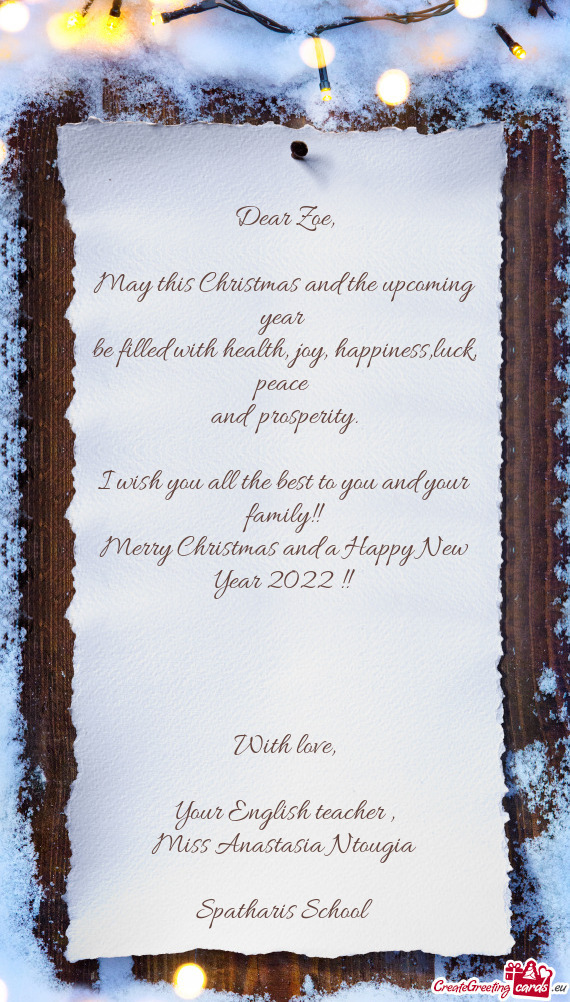 Dear Zoe,
May this Christmas and the upcoming
year
be filled with health, joy, happiness,luck,
peace
and prosperity.
I wish you all the best to you and your
family!!
Merry Christmas and a Happy New
Year 2022 !!
With love,
Your English teacher ,
Miss Anastasia Ntougia
Spatharis School
CreateGreeting cards .eu